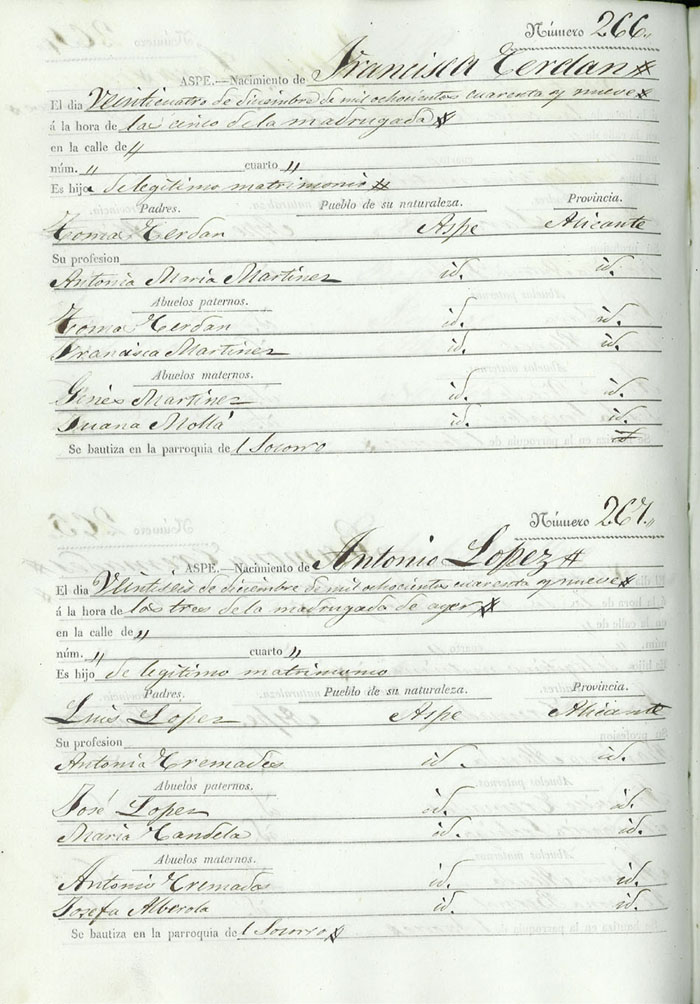 Número 266.
ASPE.—Nacimiento de Francisca Cerdan
El dia Veinticuatro de diciembre de mil ochocientos cuarenta y nueve
á la hora de las cinco de la madrugada
en la calle de "
núm. " cuarto "
Es hija de legitimo matrimonio
Padres. Pueblo de su naturaleza. Provincia.
Toma Cerdan Aspe Alicante
Su profesion
Antonia Maria Martinez id. id.
Abuelos paternos.
Toma Cerdan id. id.
Francisca Martinez id. id.
Abuelos maternos.
Ginés Martinez id. id.
Juana Mollá id. id.
Se bautiza en la parroquia de l Socorro id
Número 267.
ASPE.—Nacimiento de Antonio Lopez
El dia Veintiseis de diciembre de mil ochocientos cuarenta y nueve
á la hora de las tres de la madrugada de ayer
en la calle de "
núm. " cuarto "
Es hijo de legitimo matrimonio
Padres. Pueblo de su naturaleza. Provincia.
Luis Lopez Aspe Alicante
Su profesion
Antonia Cremades id. id.
Abuelos paternos.
José Lopez id. id.
Maria Candela id. id.
Abuelos maternos.
Antonio Cremades id. id.
Josefa Alberola id. id.
Se bautiza en la parroquia de l Socorro